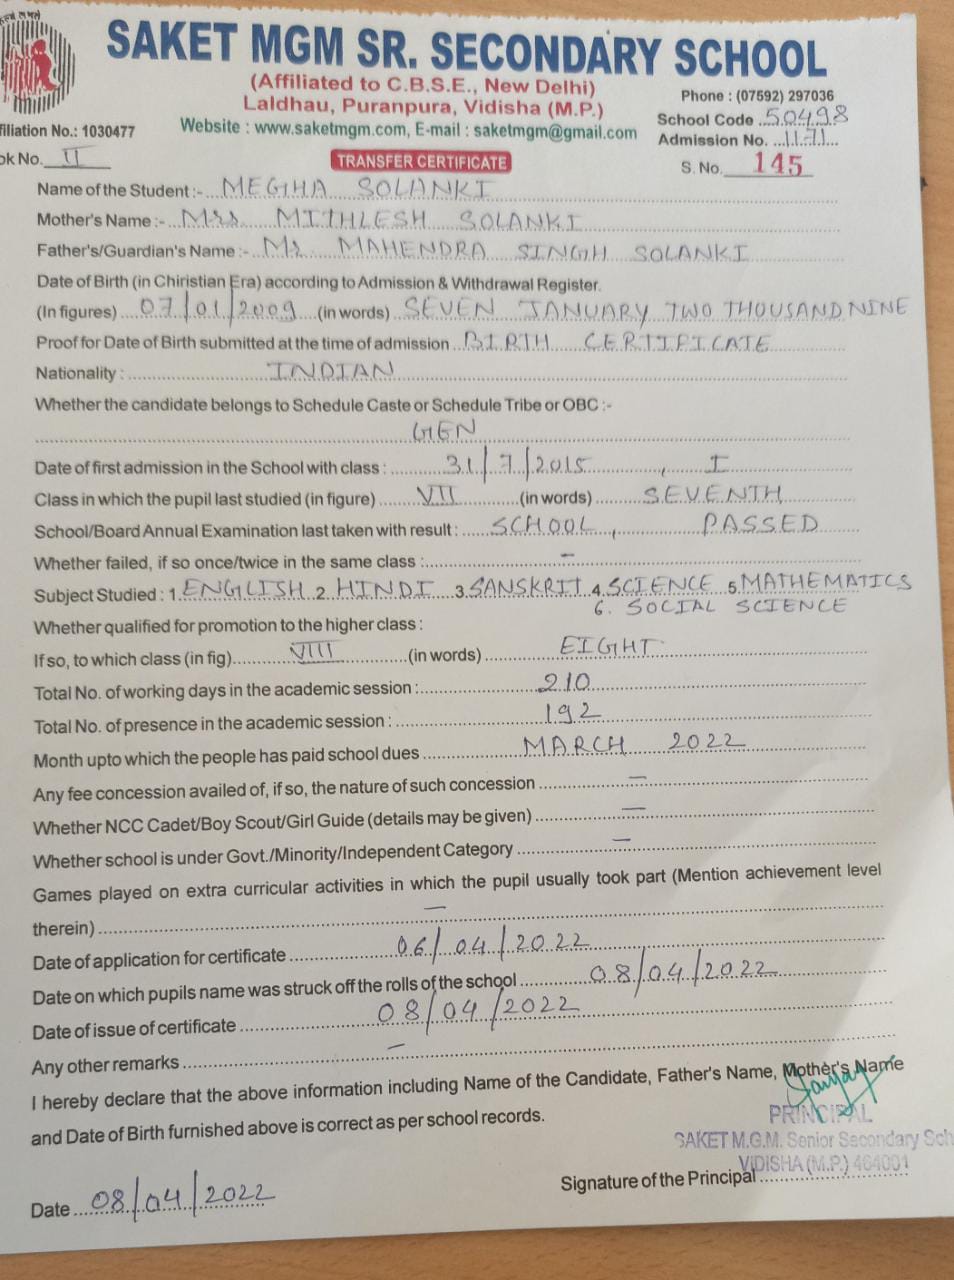 SAKET MGM SR. SECONDARY SCHOOL
(Affiliated to C.B.S.E., New Delhi)
Laldhau, Puranpura, Vidisha (M.P.)
Phone : (07592) 297036
filiation No.: 1030477
Website : www.saketmgm.com, E-mail : saketmgm@gmail.com
School Code ..50498
Admission No. ...1171...
ok No. II
TRANSFER CERTIFICATE
S. No. 145
Name of the Student :- MEGHA SOLANKI
Mother's Name :- Mrs MITHLESH SOLANKI
Father's/Guardian's Name :- Mr. MAHENDRA SINGH SOLANKI
Date of Birth (in Chiristian Era) according to Admission & Withdrawal Register.
(In figures) 07/01/2009 (in words) SEVEN JANUARY TWO THOUSAND NINE
Proof for Date of Birth submitted at the time of admission BIRTH CERTIFICATE
Nationality : INDIAN
Whether the candidate belongs to Schedule Caste or Schedule Tribe or OBC :-
GEN
Date of first admission in the School with class : 31/7/2015, I
Class in which the pupil last studied (in figure) VII (in words) SEVENTH
School/Board Annual Examination last taken with result : SCHOOL, PASSED
Whether failed, if so once/twice in the same class : –
Subject Studied : 1. ENGLISH 2. HINDI 3. SANSKRIT 4. SCIENCE 5. MATHEMATICS
6. SOCIAL SCIENCE
Whether qualified for promotion to the higher class :
If so, to which class (in fig) VIII (in words) EIGHT
Total No. of working days in the academic session : 210
Total No. of presence in the academic session : 192
Month upto which the people has paid school dues MARCH 2022
Any fee concession availed of, if so, the nature of such concession –
Whether NCC Cadet/Boy Scout/Girl Guide (details may be given) –
Whether school is under Govt./Minority/Independent Category –
Games played on extra curricular activities in which the pupil usually took part (Mention achievement level
therein) –
Date of application for certificate 06/04/2022
Date on which pupils name was struck off the rolls of the school 08/04/2022
Date of issue of certificate 08/04/2022
Any other remarks –
I hereby declare that the above information including Name of the Candidate, Father's Name, Mother's Name
and Date of Birth furnished above is correct as per school records.
PRINCIPAL
SAKET M.G.M. Senior Secondary Sch
VIDISHA (M.P.) 464001
Signature of the Principal
Date 08/04/2022